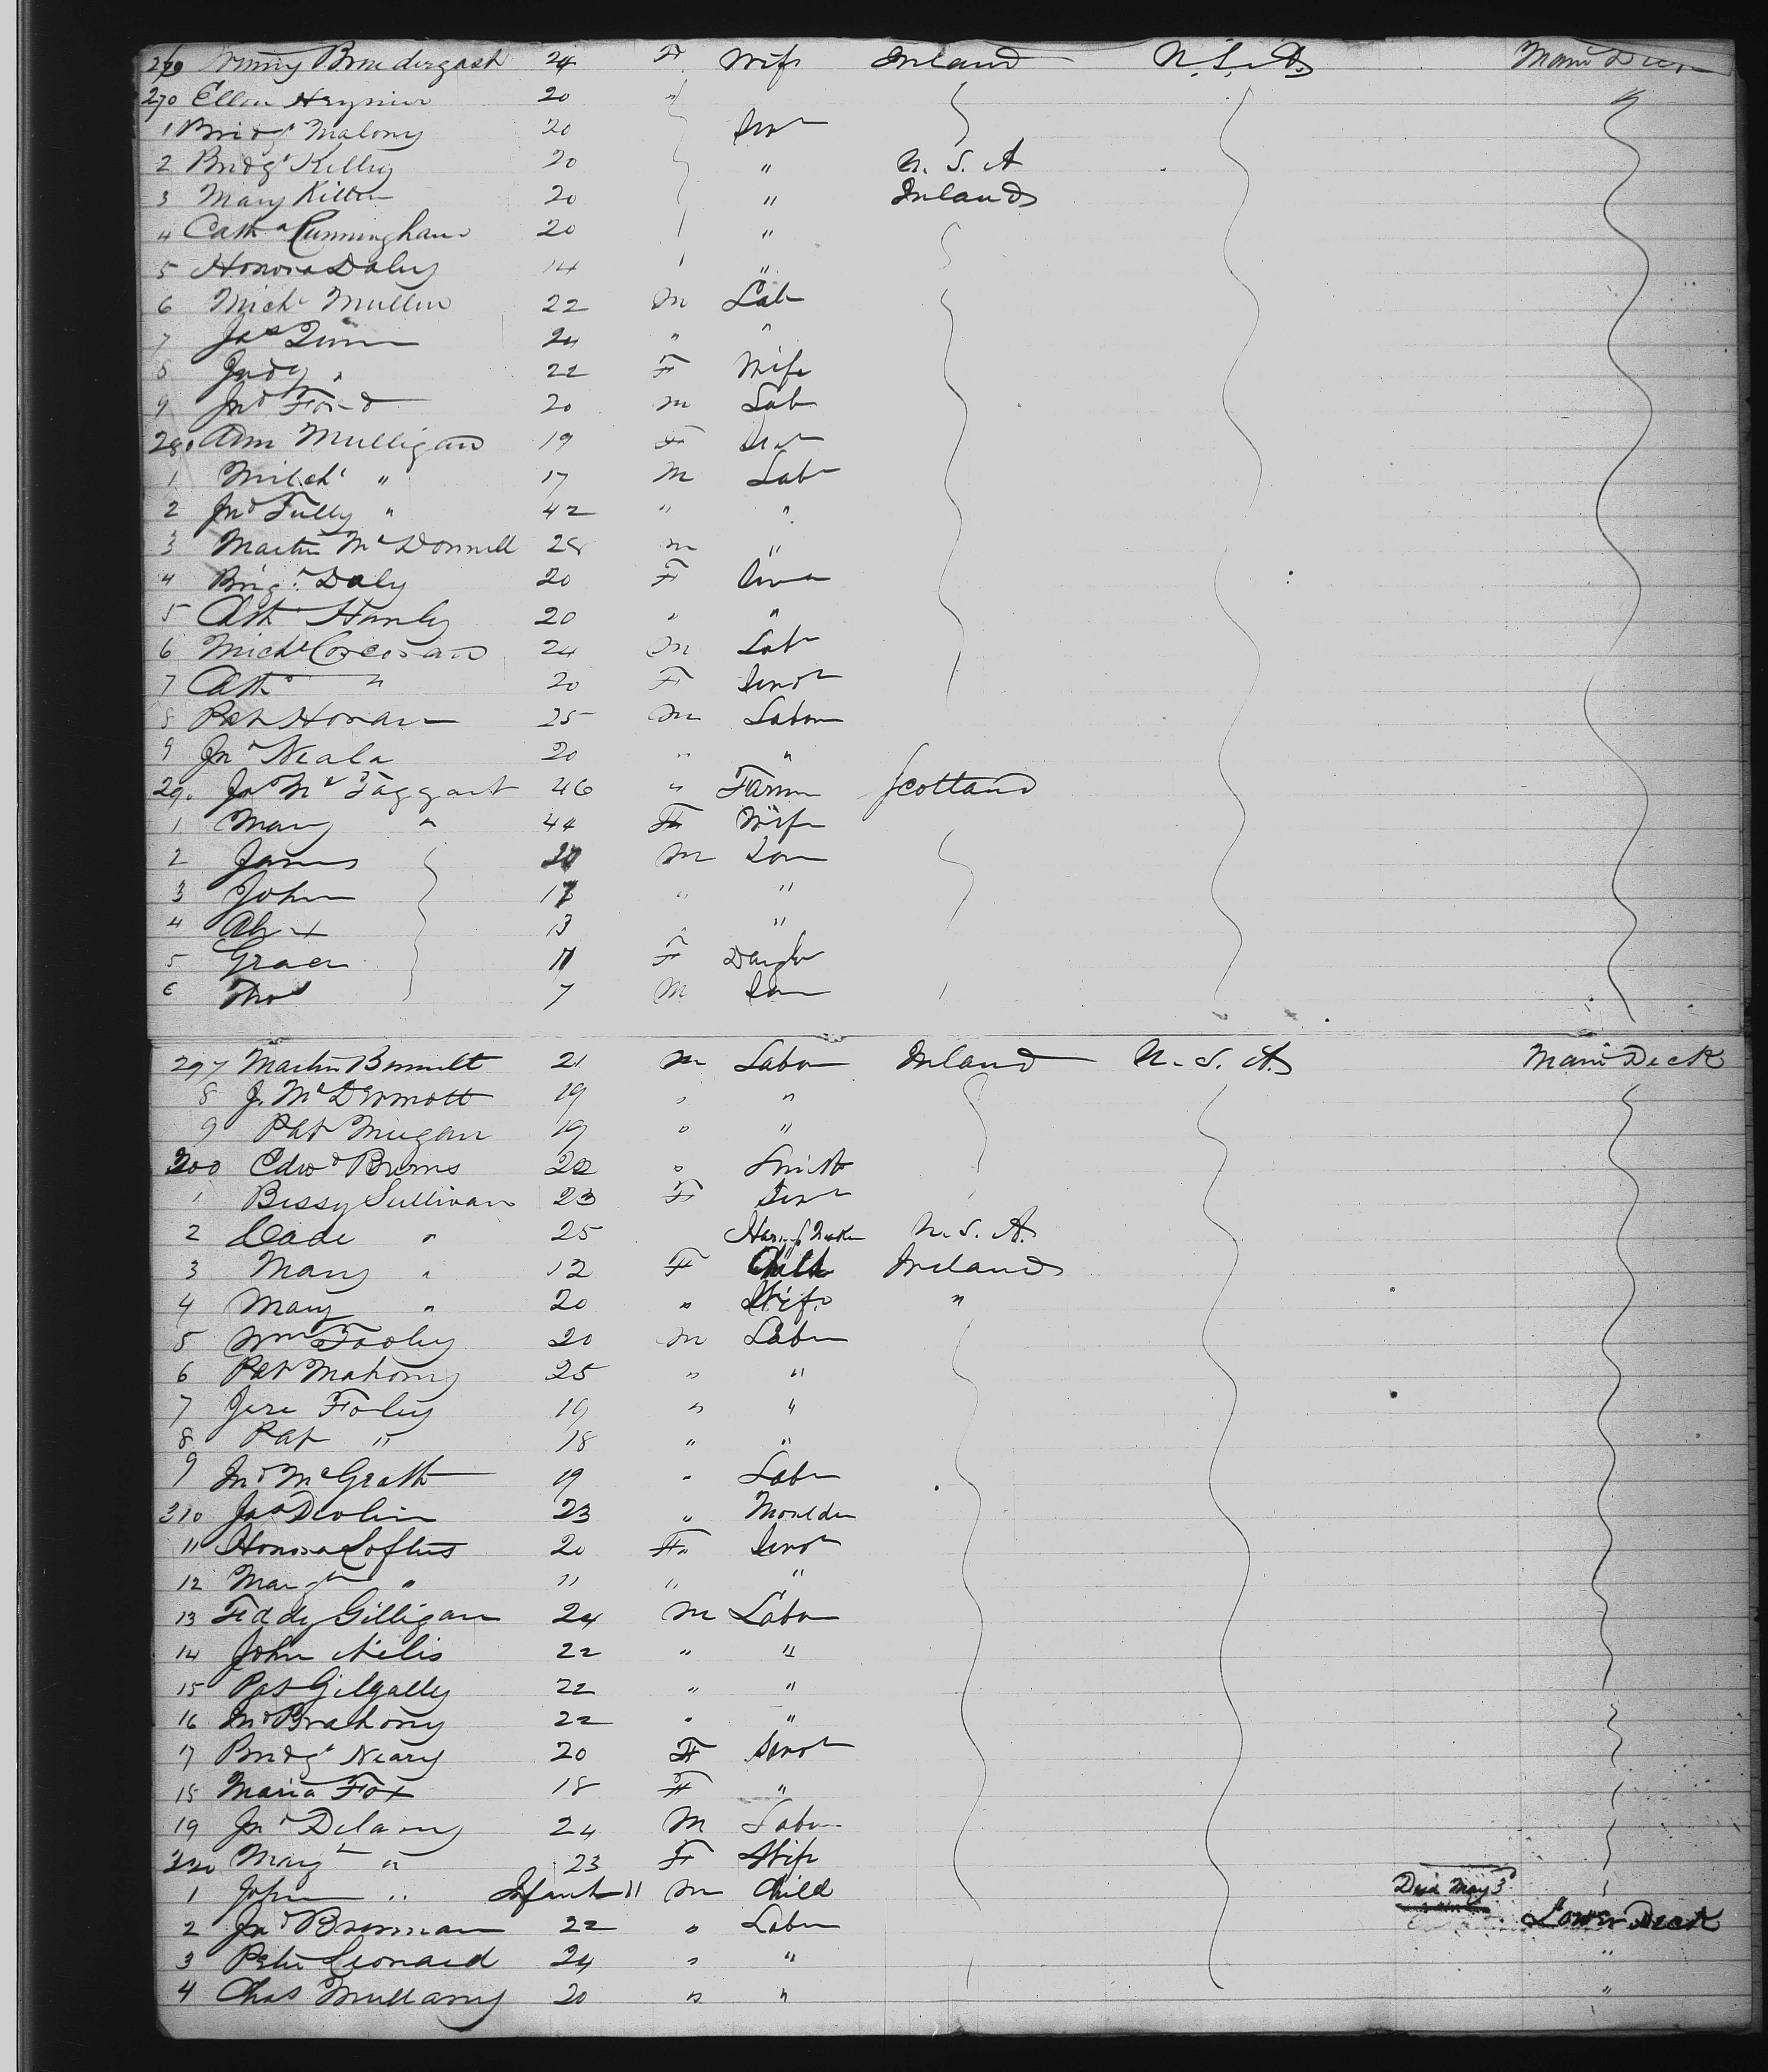 269 Brendergast 24 F Wife Ireland U.S.A. Main Deck
270 Ellen 20 "
1 Bridgt Malony 20 Servt
2 Bridgt Kelly 20 " U.S.A
3 Mary Kitten 20 " Ireland
4 Cath Cunningham 20 "
5 Honora Daley 14 "
6 Michl Mullin 22 M Lab
7 Jas Quinn 24 " "
8 Judy " 22 F Wife
9 Jno Ford 20 M Lab
280 Ann Mulligan 19 F Servt
1 Mitchl " 17 M Labr
2 Jno Tully " 42 " "
3 Martin McDonnell 28 M "
4 Brigt Daly 20 F Servt
5 Cath Hanly 20 " "
6 Michl Corcoran 24 M Labr
7 Cath " 20 F Servt
8 Pat Horan 25 M Labor
9 Jno Neala 20 " "
290 Jas McTaggart 46 " Farmr Scotland
1 Mary " 44 F Wife
2 James 20 M Son
3 John 17 " "
4 Alex 13 " "
5 Grace 11 F Daughr
6 Thos 7 M Son
297 Martin Bennett 21 M Labor Ireland U.S.A. Main Deck
8 J. McDermott 19 " "
9 Pat Meegan 19 " "
300 Edwd Burns 22 " Smith
1 Bessy Sullivan 23 F Servt
2 Cade " 25 U.S.A.
3 Mary " 12 F Child Ireland
4 Mary " 20 " Wife "
5 Wm Fooley 20 M Labor
6 Pat Mahony 25 " "
7 Jere Foley 19 " "
8 Pat " 18 " "
9 Jno McGrath 19 " Labr
310 Jas Devlin 23 " Moulder
11 Honora Loftus 20 F Servt
12 Margt " 11 " "
13 Teddy Gilligan 24 M Labor
14 John Nelis 22 " "
15 Pat Gilgally 22 " "
16 Jno Brahony 22 " "
17 Bridgt Neary 20 F Servt
18 Maria Fox 18 F "
19 Jno Delany 24 M Labor
320 Margt " 23 F Wife
1 John " Infant 11 M Child Died May 3d
2 Jno Brennan 22 " Labor Lower Deck
3 Peter Leonard 24 " " "
4 Chas Mullarny 20 " " "